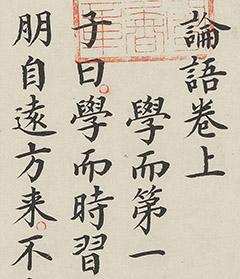 論語卷上
學而第一
子曰學而時習
朋自遠方来不